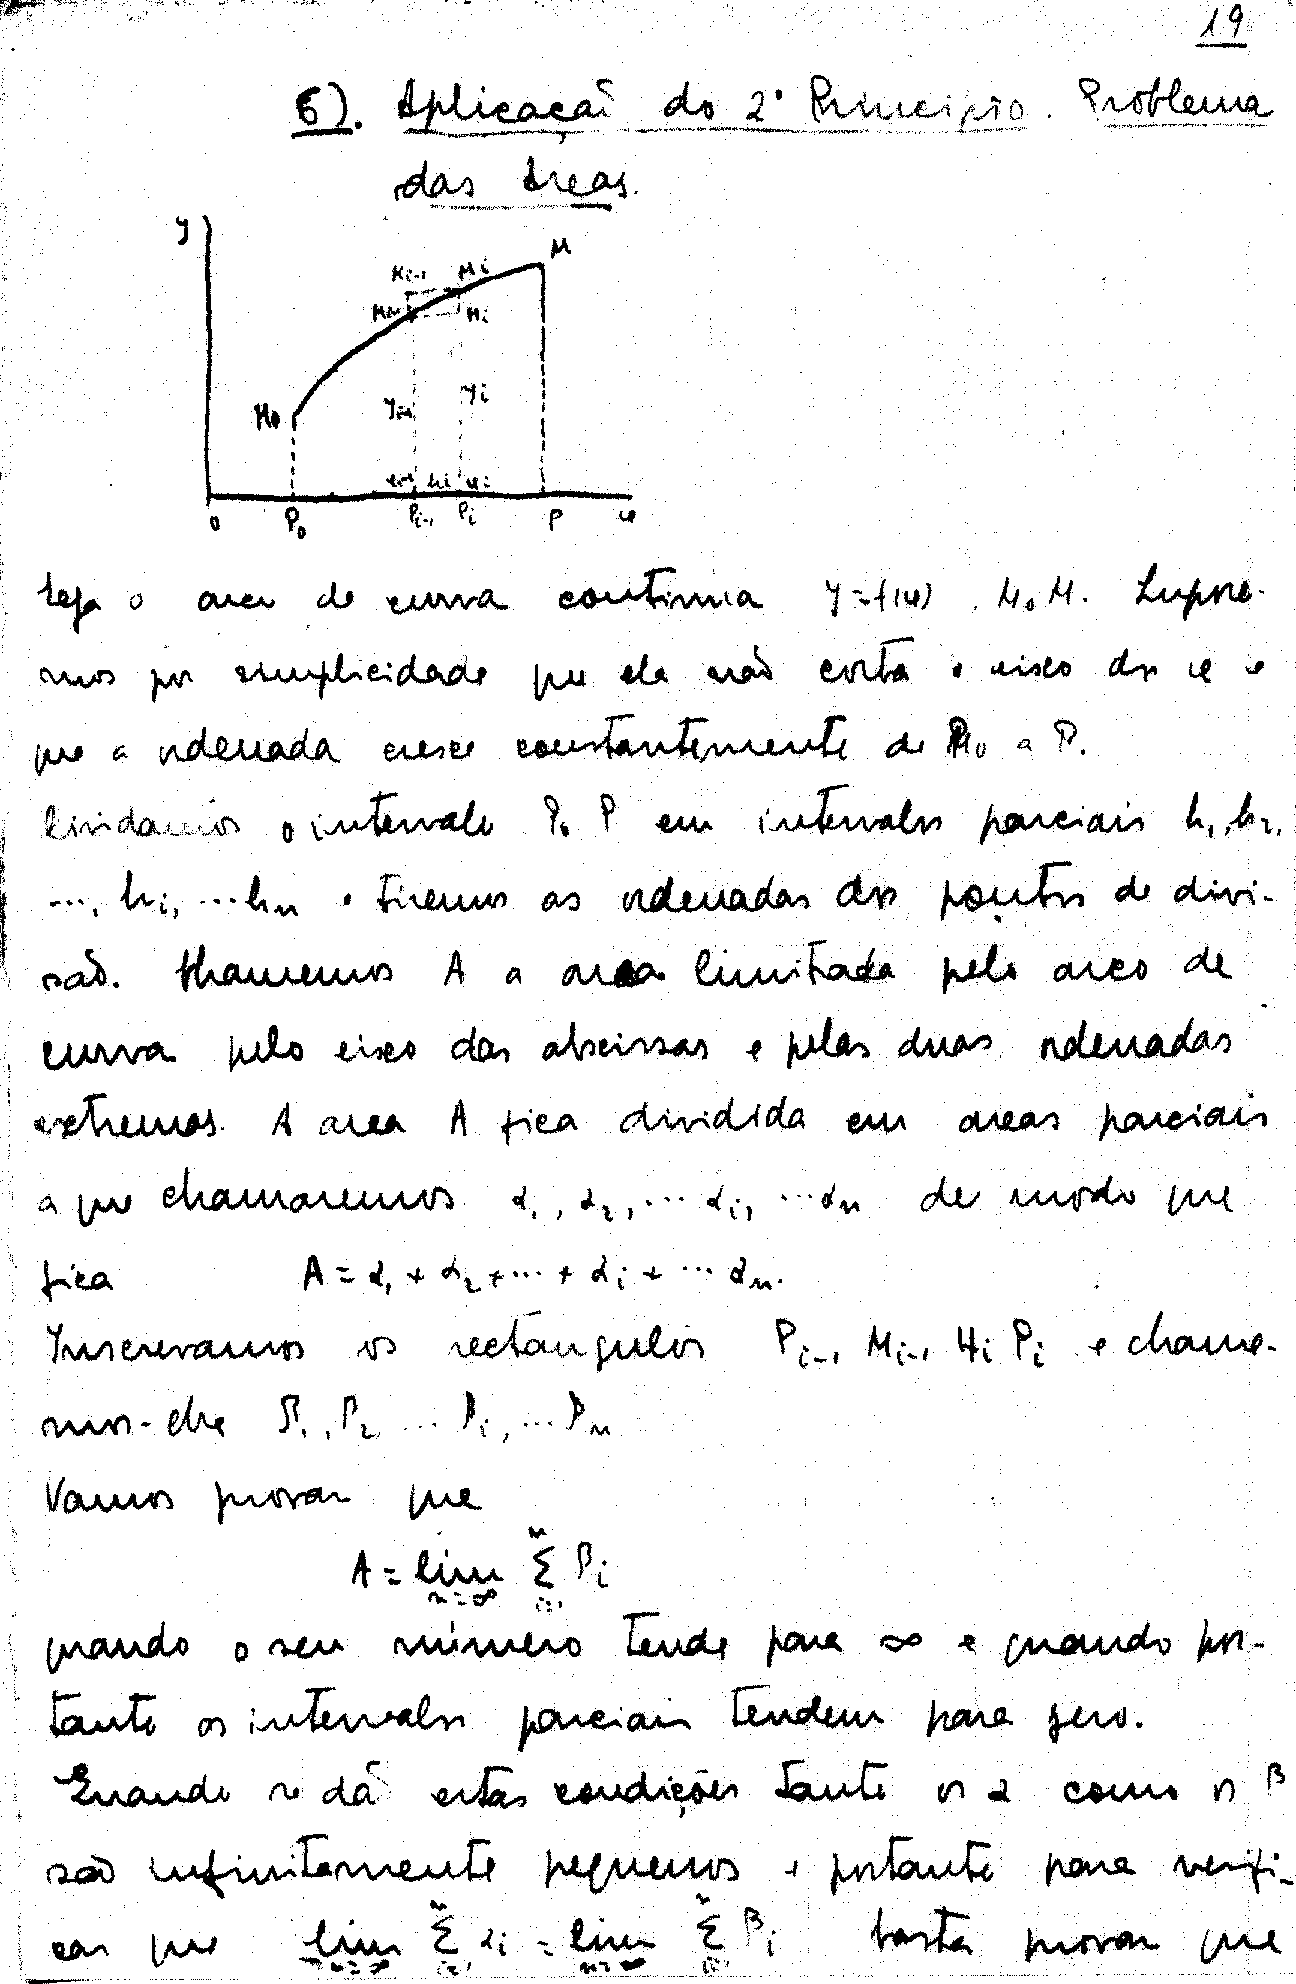 19
6). Aplicação do 2º Principio. Problema
das áreas.
y
M
Ki-1 Mi
Mi-1 Hi
M0 yi-1 yi
xi-1 hi xi
0 P0 Pi-1 Pi P x
Seja o arco de curva continua y=f(x), M0M. Supore-
mos por simplicidade que ela não corta o eixo dos x e
que a ordenada cresce constantemente de P0 a P.
Dividamos o intervalo P0 P em intervalos parciais h1, h2,
..., hi, ...hn e tiremos as ordenadas dos pontos de divi-
são. Chamemos A a area limitada pelo arco de
curva pelo eixo das abscissas e pelas duas ordenadas
extremas. A area A fica dividida em areas parciais
a que chamaremos α1, α2, ... αi, ...αn de modo que
fica A = α1 + α2 + ... + αi + ... αn.
Inscrevamos os rectangulos Pi-1 Mi-1 Hi Pi e chame-
mos-lhe β1, β2 ... βi, ... βn
Vamos provar que
A = lim n=∞ n Σ i=1 βi
quando o seu número tende para ∞ e quando por-
tanto os intervalos parciais tendem para zero.
Quando se dá estas condições tanto os α como os β
são infinitamente pequenos e portanto para verifi-
car que lim n=∞ n Σ i=1 αi = lim n=∞ n Σ i=1 βi basta provar que